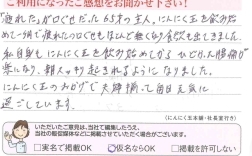 ご利用になったご感想をお聞かせ下さい!
「疲れた」が口ぐせだった63才の主人、にんにく玉を飲み始
めて一ヶ月で疲れたの口ぐせもほとんど無くなり元気も出てきました。
私自身もにんにく玉を飲み始めてから
楽になり、朝スッキリ起きれるようになりました。
にんにく玉のおかげで夫婦揃って毎日元気に
過ごしています。
(にんにく玉本舗・社長室行き)
いただいたご意見は、当社で編集したうえ、
当社の販促媒体などに掲載させていただく場合がございます。
□実名で掲載OK 仮名ならOK □掲載を許可しない